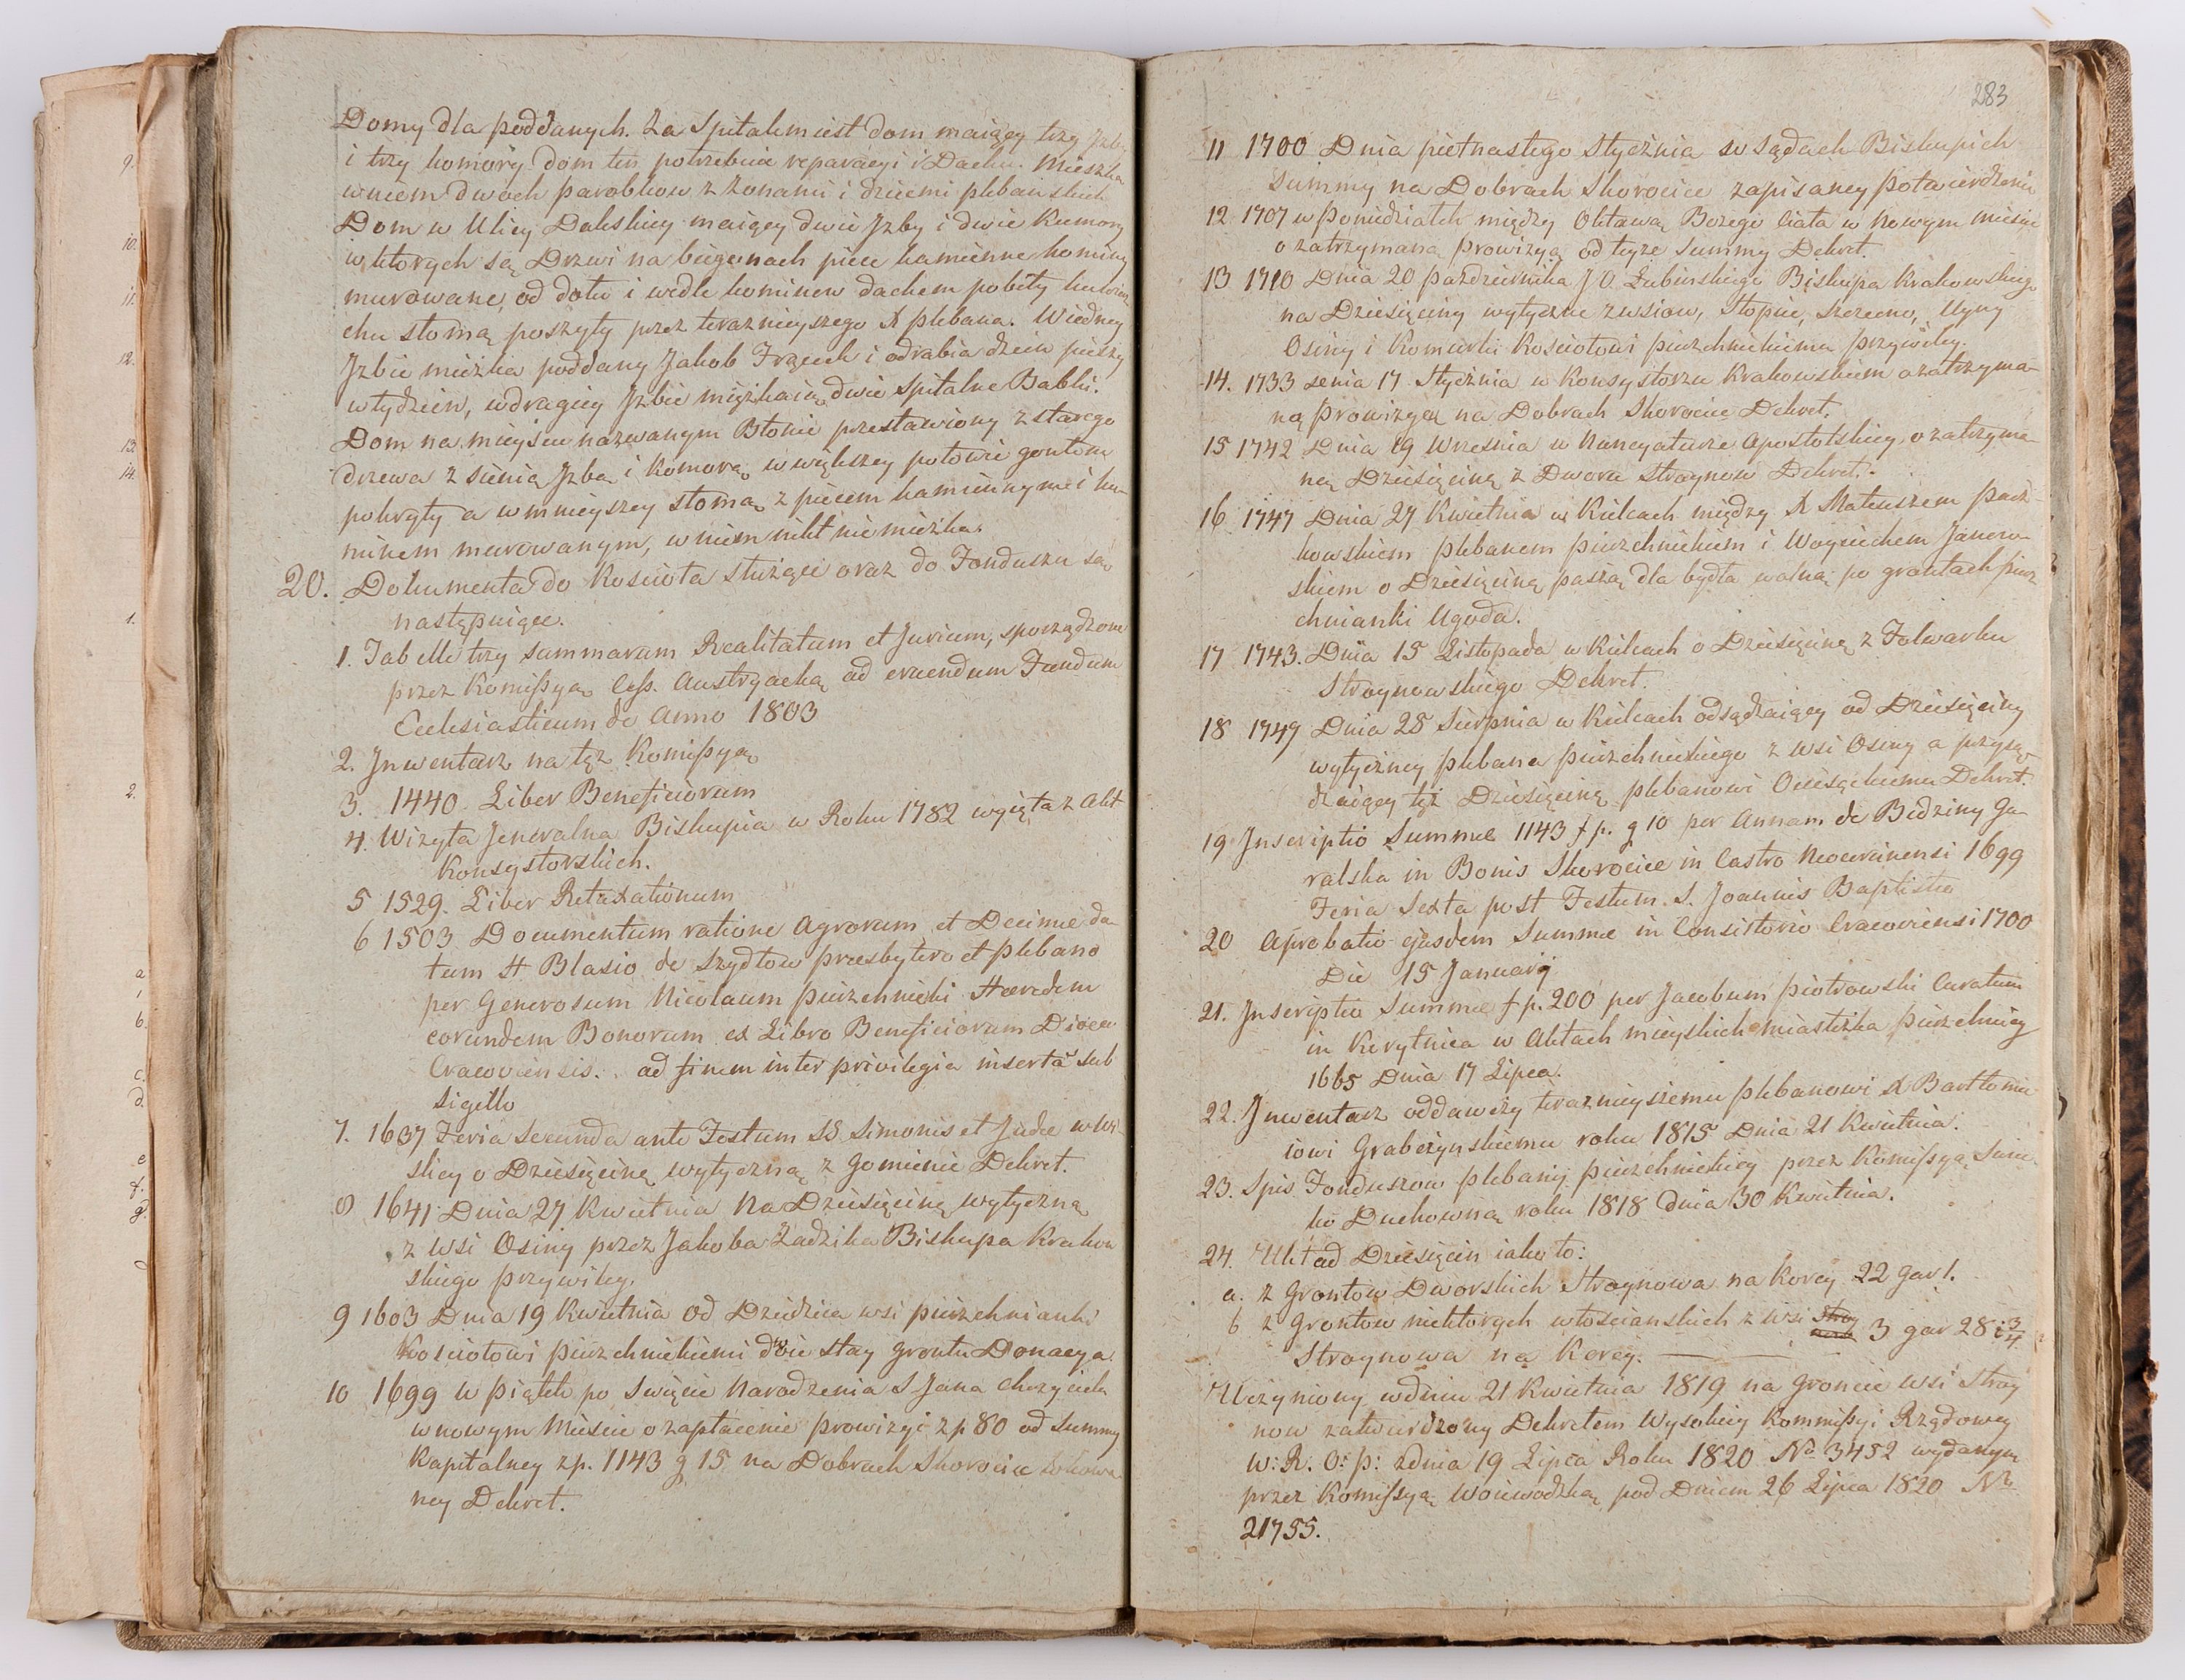 Domy dla poddanych. Za Spitalem iest dom maiący trzy Jzby
i trzy komory dom ten potrzebuie reparacyi i Dachu. Mieszka
w niem dwóch parobkow z Żonami i dziećmi plebańskich
Dom w Ulicy maiący dwie Jzby i dwie Kumory
w ktorych są Drzwi na biegunach piece kamienne kominy
murowane, od dołu i wedle kominow dachem pobity
chu słomą poszyty przez teraznieyszego X plebana. W iedney
Jzbie mieszka poddany Jakob i odrabia dzien pieszy
w tydzien, w drugiey Jzbie mięszkaią dwie Spitalne Babki.
Dom na mieyscu nazwanym Błonie przestawiony z starego
drzewa z sienią Jzbą i Komorą w większey połowie gontem
pokryty a w mnieyszey słomą z piecem kamiennym i ko-
minem murowanym, w niem nikt nie mieszka.
20. Dokumenta do Koscioła służące oraz do Funduszu są
następuiące.
1. Tabelle trzy summarum Realitatum et Jurium, sporządzone
przez Komissyą Cess. Austryacką ad eruendum Fundum
Ecclesiasticum de Anno 1803
2. Jnwentarz na tęż Komissyą
3. 1440. Liber Beneficiorum
4. Wizyta Jeneralna Biskupia w Roku 1782 wyięta z Akt
Konsystorskich.
5 1529. Liber Retaxationum
6 1503 Documentum ratione Agrorum et Decimae da-
tum H Blasio de Szydłow praesbytero et plebano
per Generosum Nicolaum pierzchnicki Haeredem
eorundem Bonorum ex Libro Beneficiorum Dioec.
Cracoviensis. ad finem inter privilegia inserta sub
Sigillo
7. 1637 Feria Secunda ante Festum SS. Simonis et Judae w Wi-
slicy o Dziesięcinę wytyczną z Gomienic Dekret.
8 1641 Dnia 27 Kwietnia Na Dziesięcinę wytyczną
z wsi Osiny przez Jakoba Zadzika Biskupa Krakow
skiego przywiley.
9 1603 Dnia 19 Kwietnia Od Dziedzica wsi pierzchnianki
Kosciołowi pierzchnickiemi dwie stay gruntu Donacya.
10 1699 w piątek po Swięcie Narodzenia S Jana Chrzyciela
w nowym Miescie o zapłacenie prowizyi zp 80 od Summy
Kapitalney zp. 1143 g 15 na Dobrach Skorocice lokowa
ney Dekret.
283
11 1700 Dnia piętnastego Stycznia w Sądach Biskupich
Summy na Dobrach Skorocice zapisaney potwierdzenie
12 1707 w poniedziałek między Oktawą Bozego Ciała w Nowym miescie
o zatrzymaną prowizyą od teyże Summy Dekret.
13 1710 Dnia 20 pazdziernika J O Łubinskiego Biskupa Krakowskiego
na Dziesięciny wytyczne z wsiow, Stopiec, Skrzelno, Ugny
Osiny i Komurki Kosciołowi pierzchnickiemu przywiley.
14. 1733 17 Stycznia w Konsystorzu Krakowskiem o zatrzyma-
ną prowizyą na Dobrach Skorocice Dekret.
15 1742 Dnia 19 Wrzesnia w Nuncyaturze Apostolskiey o zatrzyma-
ną Dziesięcinę z Dworu Stroynow Dekret.
16 1747 Dnia 27 Kwietnia w Kielcach między X Mateuszem
kowskiem plebanem pierzchnickiem i Woyciechem Janow-
skiem o Dziesięcinę paszą dla bydła wolną po gruntach pierz
chnianki Ugoda.
17 1743. Dnia 15 Listopada w Kielcach o Dziesięcinę z Folwarku
Stroynowskiego Dekret.
18 1749 Dnia 28 Sierpnia w Kielcach odsądzaiący od Dziesięciny
wytyczney plebana pierzchnickiego z wsi Osiny a przysą-
dzaiący tęż Dziesięcinę plebanowi Ociesęckiemu Dekret.
19 Jnscriptio Summae 1143 f p. g 10 per Annam de Bidziny Ga-
ralska in Bonis Skorocice in Castro Neocorcinensi 1699
Feria Sexta post Festum. S. Joannis Baptistae
20 Aprobatio ejusdem Summae in Consistorio Cracoviensi 1700
Die 15 Januarij
21. Jnscriptio Summae f p. 200 per Jacobum piotrowski Curatum
in Korytnica w Aktach mieyskich miasteczka pierzchnicy
1665 Dnia 17 Lipca.
22. Jnwentarz oddawczy teraznieyszemu plebanowi X Bartłomie
iowi Grabczynskiemu roku 1815 Dnia 21 Kwietnia.
23. Spis Funduszow plebanij pierzchnickiey przez Komissyą Swiec-
ko Duchowną roku 1818 dnia 30 Kwietnia.
24. Układ Dziesięcin iako to:
a. z Gruntow Dworskich Stroynowa na Korcy 22 gar 1.
b z Gruntow niektorych włościanskich z wsi 3 gar 28 i 3/4
Stroynowa na Korcy.
Uczyniony w dniu 21 Kwietnia 1819 na gruncie wsi Stroy
now zatwierdzony Dekretem Wysokiey Kommissyi Rządowey
W: R: O: p: z dnia 19 Lipca Roku 1820 No 3452 wydanym
przez Komissyą Woiewodzką pod Dniem 26 Lipca 1820 No
21755.